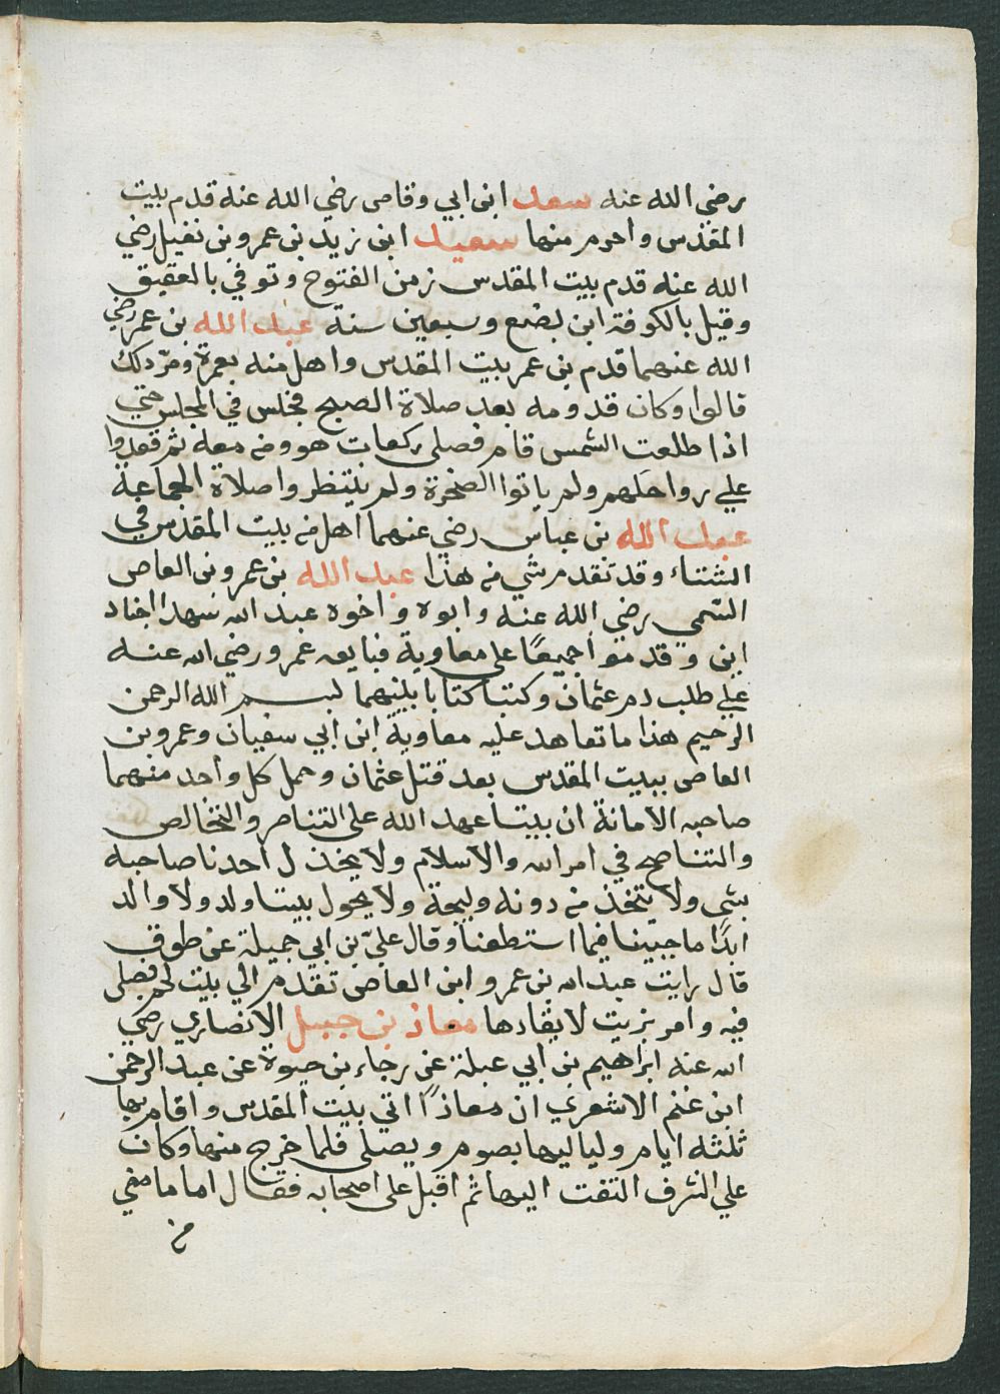 رضي الله عنه سعد ابن ابي وقاص رضي الله عنه قدم بيت
المقدس واحرم منها سعيد ابن زيد بن عمرو بن نفيل رضي
الله عنه قدم بيت المقدس زمن الفتوح وتوفي بالعقيق
وقيل بالكوفة ابن بضع وسبعين سنة عبد الله بن عمر رضي
الله عنهما قدم بن عمر بيت المقدس واهل منه بعمرة ومرّ دلك
قالوا وكان قدومه بعد صلاة الصبح فجلس في المجلس حتي
اذا طلعت الشمس قام فصلي ركعات هو ومن معه ثم قعدوا
علي رواحلهم ولم ياتوا الصخرة ولم ينتظروا صلاة الجماعة
عبد الله بن عباس رضي عنهما اهل من بيت المقدس في
الشتاء وقد تقدم شي من هذا عبد الله بن عمرو بن العاص
السّمي رضي الله عنه وابوه واخوه عبد الله شهدا اجناد
ابن وقدموا جميعًا علي معاوية فبايعه عمرو رضي الله عنه
علي طلب دم عثمان وكتبا كتابا بينهما بسم الله الرحمن
الرحيم هذا ما تعاهد عليه معاوية ابن ابي سفيان وعمرو بن
العاص ببيت المقدس بعد قتل عثمان وحمل كل واحد منهما
صاحبه الامانة ان بيننا عهد الله علي التناصر والتخالص
والتناصح في امر الله والاسلام ولا يخذل احدنا صاحبه
بشي ولا يتخذ من دونه وليجة ولا يحول بيننا ولد ولا والد
ابدًا ما حيينا فيما استطعنا وقال عليّ بن ابي جميلة عن طوق
قال رايت عبد الله بن عمرو ابن العاص تقدم الي بيت لحم فصلي
فيه وامر بزيت لايقادها معاذ بن جبل الانصاري رضي
الله عنه ابراهيم بن ابي عبلة عن رجاء بن حيوة عن عبد الرحمن
ابن غنم الاشعري ان معاذًا اتي بيت المقدس واقام بها
ثلثه ايام ولياليها يصوم ويصلي فلما خرج منها وكان
علي الشرف التفت اليها ثم اقبل علي اصحابه فقال اما ما مضي
من